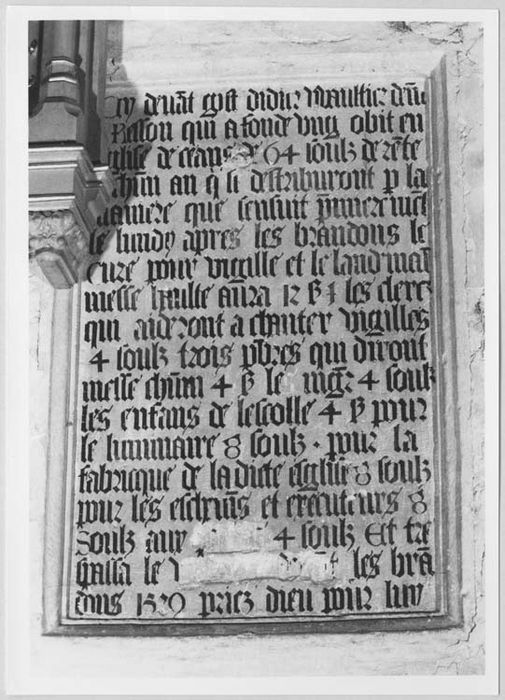 Cy devāt gist didier Vaultier demᵗ
Reson qui a fonde vng obit en
eglise de ceans de 64 soulz de rēte
chūn an q se destriburont p la
maniere que sensuit p̄mieremēt
le lundy apres les brandons le
Cure pour vigille et le land maī
messe haulte aūra 12 ß les clerc
qui aideront a chanter vigilles
4 soulz trois pb̄res qui diront
messe chūn 4 ß le mgr̄ 4 soulz
les enfans de lescolle 4 ß pour
le luminaire 8 soulz · pour la
fabricque de ladicte esglise 8 soulz
pour les eschūns et executeurs 8
Soulz aux 4 soulz Et tre
spassa le les brā
dons 1539 priez dieu pour luy